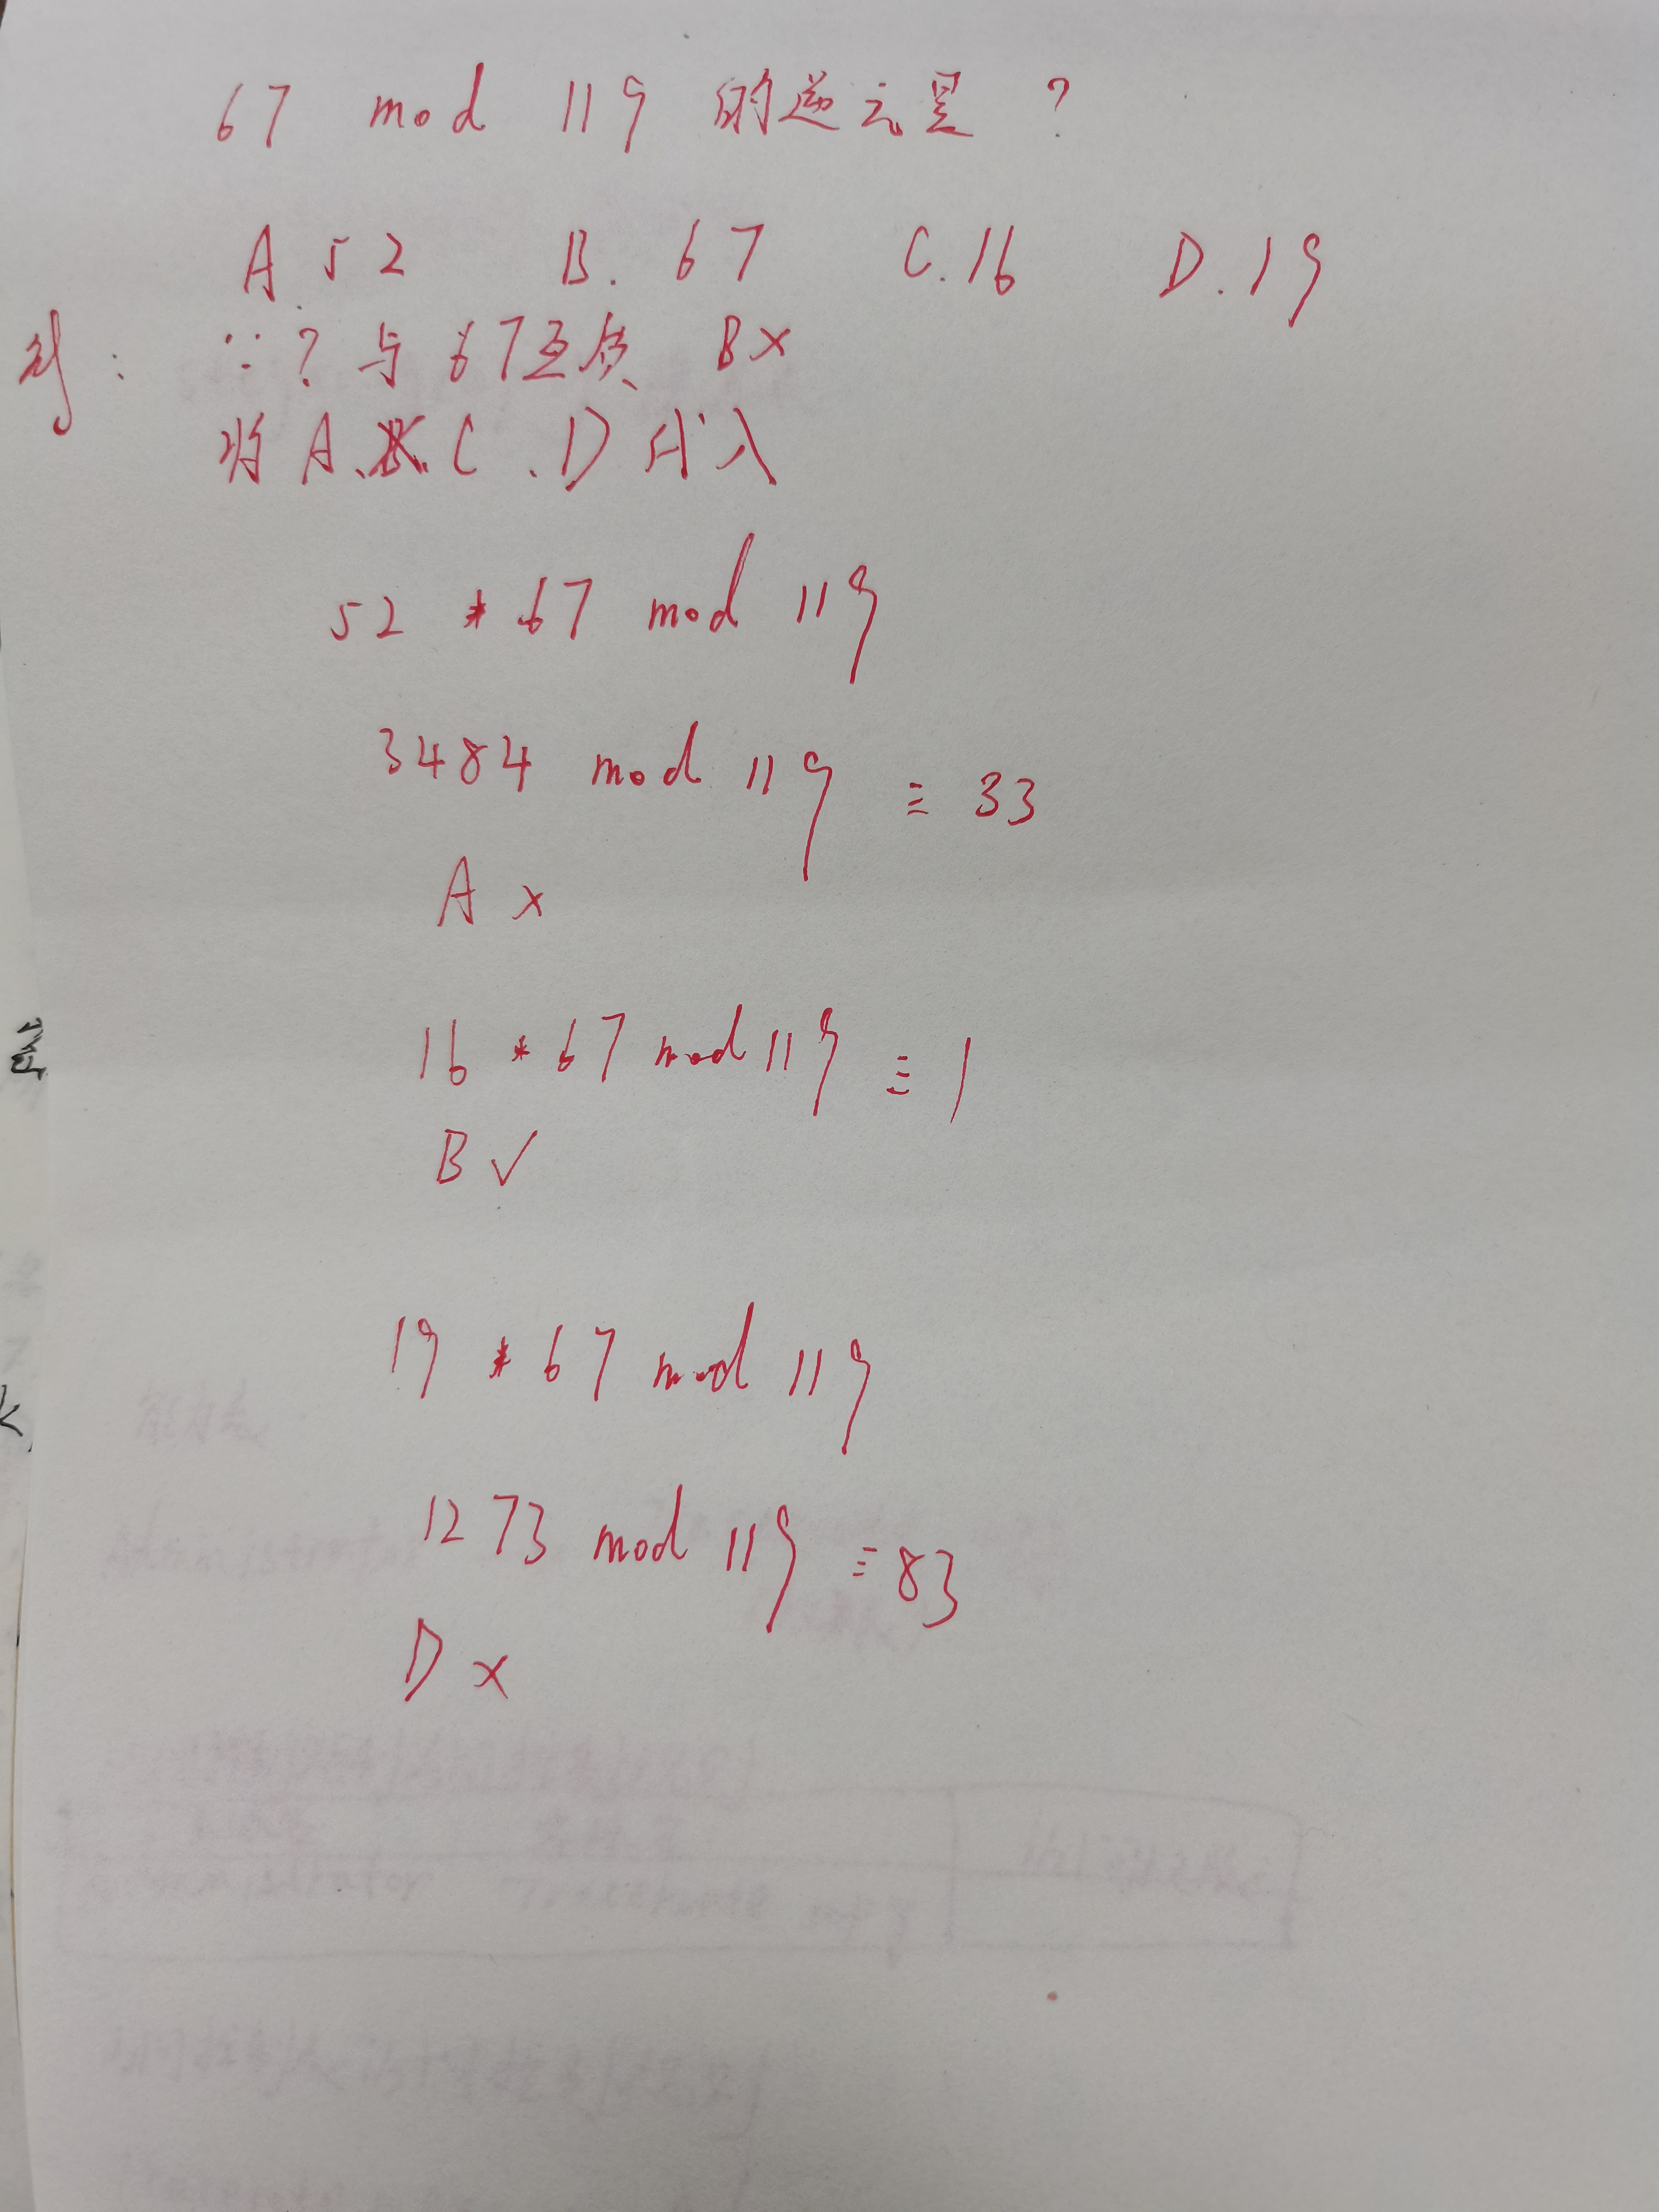 67 mod 119 的逆元是 ?
A. 52 B. 67 C. 16 D. 19
∵ ? 与 67互质 B×
将 A. C. D 代入
52 * 67 mod 119
3484 mod 119 ≡ 33
A ×
16 * 67 mod 119 ≡ 1
B √
19 * 67 mod 119
1273 mod 119 ≡ 83
D ×